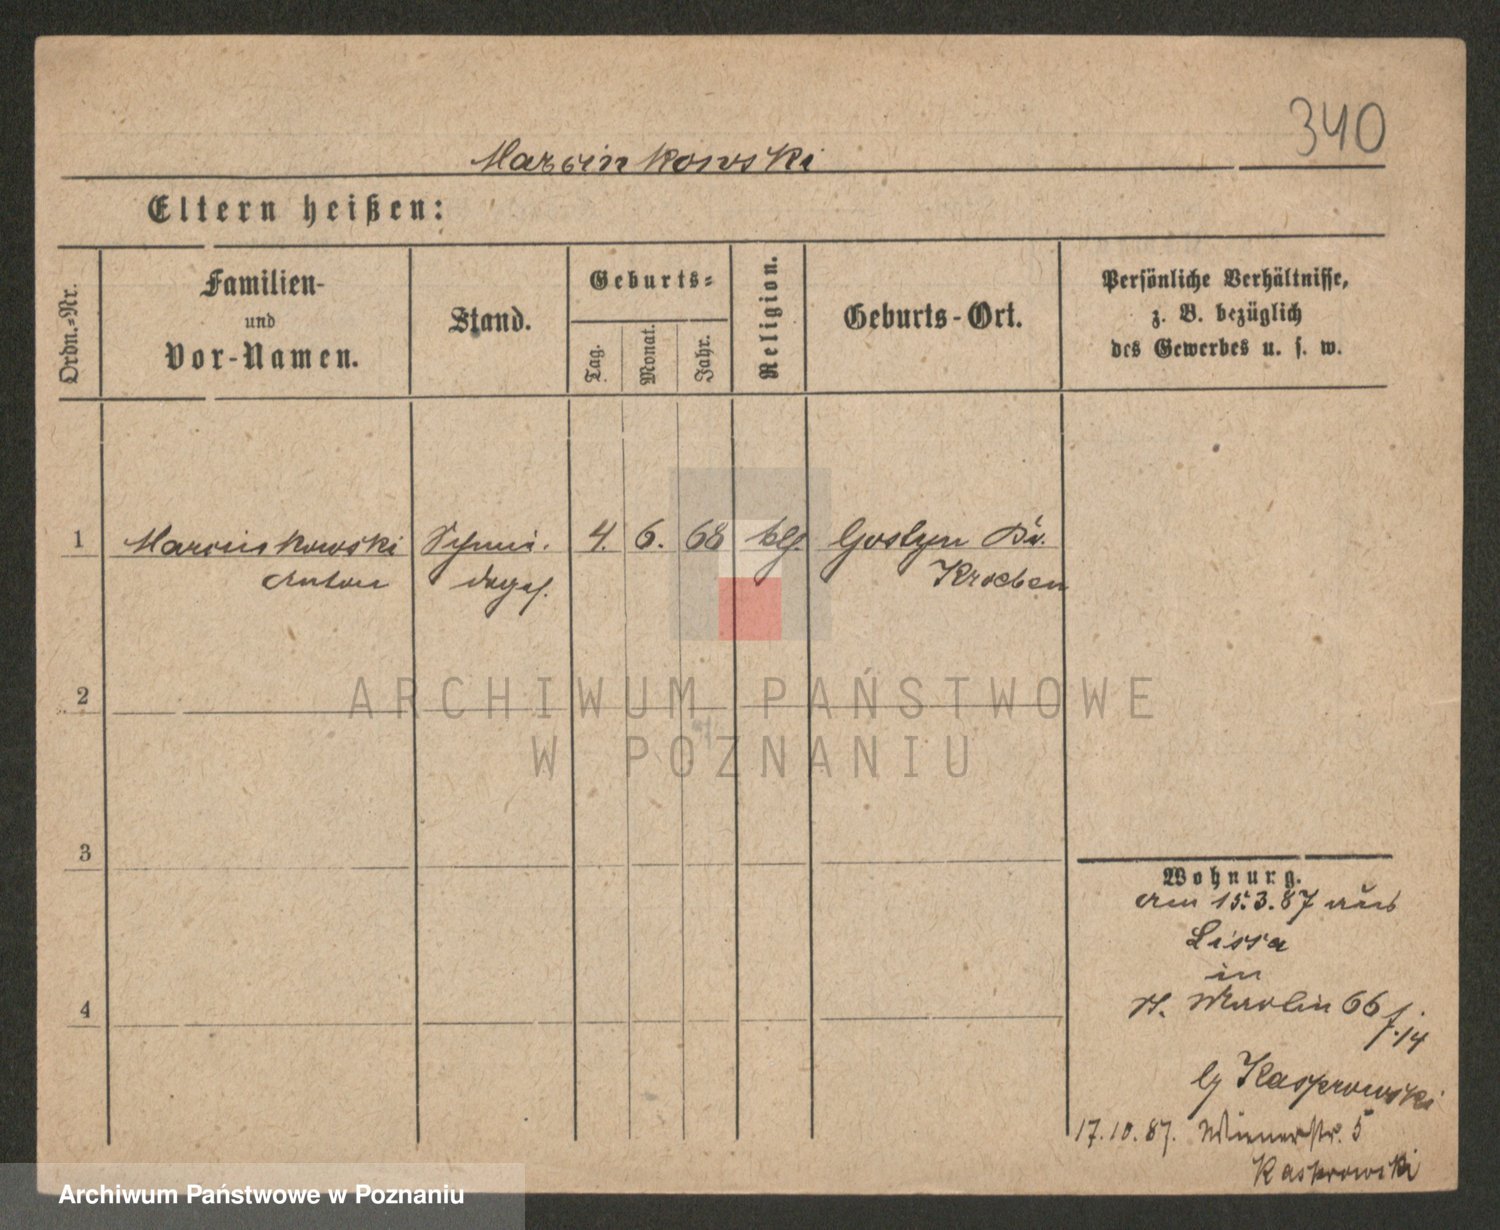 340
Marcinkowski
Eltern heißen:
Ordn.-Nr.
Familien-
und
Vor-Namen.
Stand.
Geburts-
Tag.
Monat.
Jahr.
Religion.
Geburts-Ort.
Persönliche Verhältnisse,
z. B. bezüglich
des Gewerbes u. s. w.
1 Marcinkowski Schmi. 4. 6. 68 klg. Gostyn Kr.
Anton degs. Kroeben
2
ARCHIWUM PAŃSTWOWE
W POZNANIU
3
Wohnung.
am 15.3.87 aus
Lissa
in
St. Martin 66
f. 14
bg Kasprowski
4
17.10.87. Wienerstr. 5
Kasprowski
Archiwum Państwowe w Poznaniu